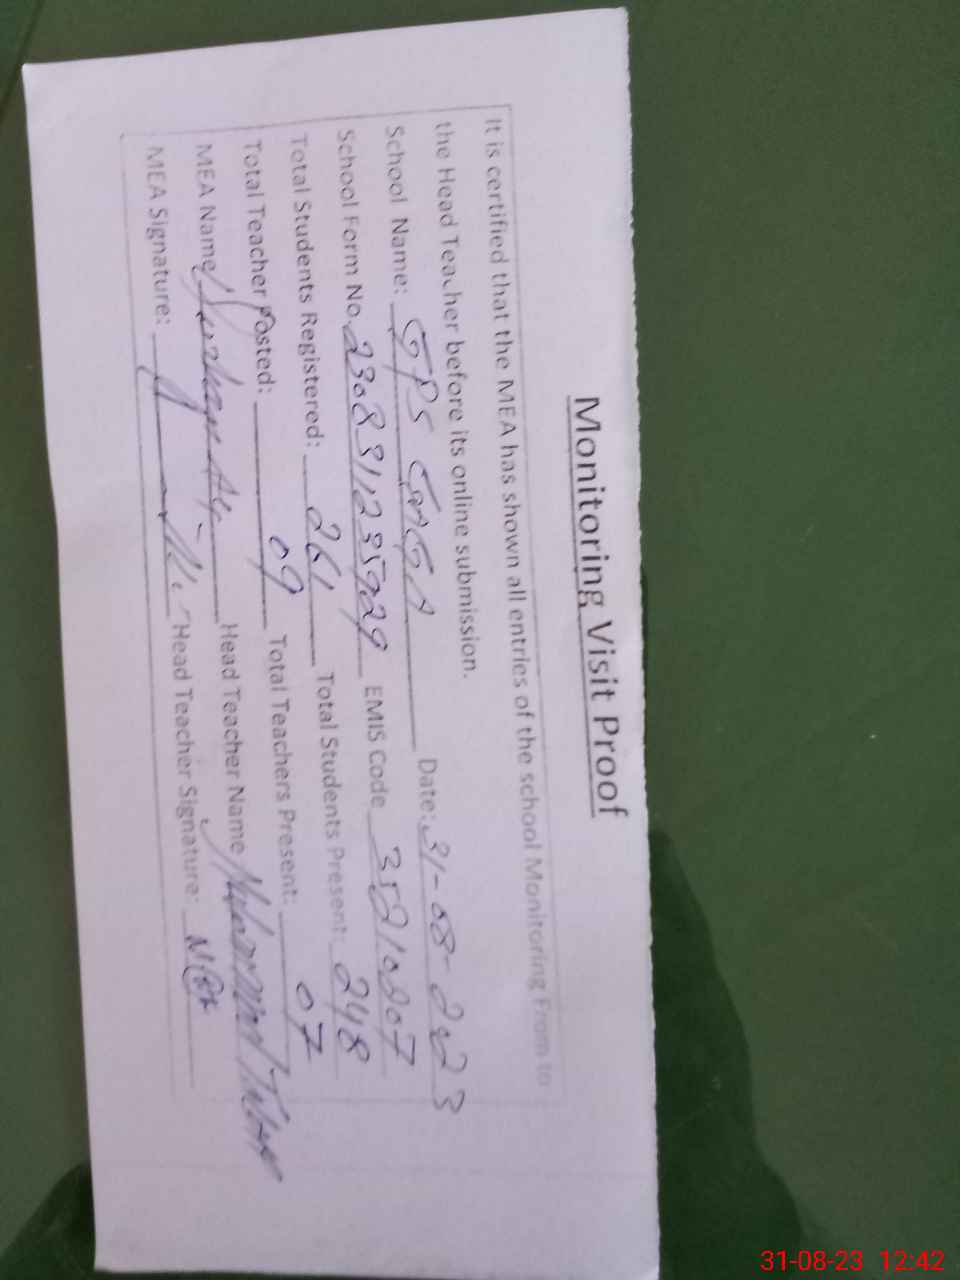 Monitoring Visit Proof
It is certified that the MEA has shown all entries of the school Monitoring From to
the Head Teacher before its online submission.
School Name: GPS GAGA Date: 31-08-2023
School Form No. 2308311235929 EMIS Code 35210207
Total Students Registered: 261 Total Students Present: 248
Total Teacher Posted: 09 Total Teachers Present: 07
MEA Name Head Teacher Name Muhammad
MEA Signature: Head Teacher Signature:
31-08-23 12:42